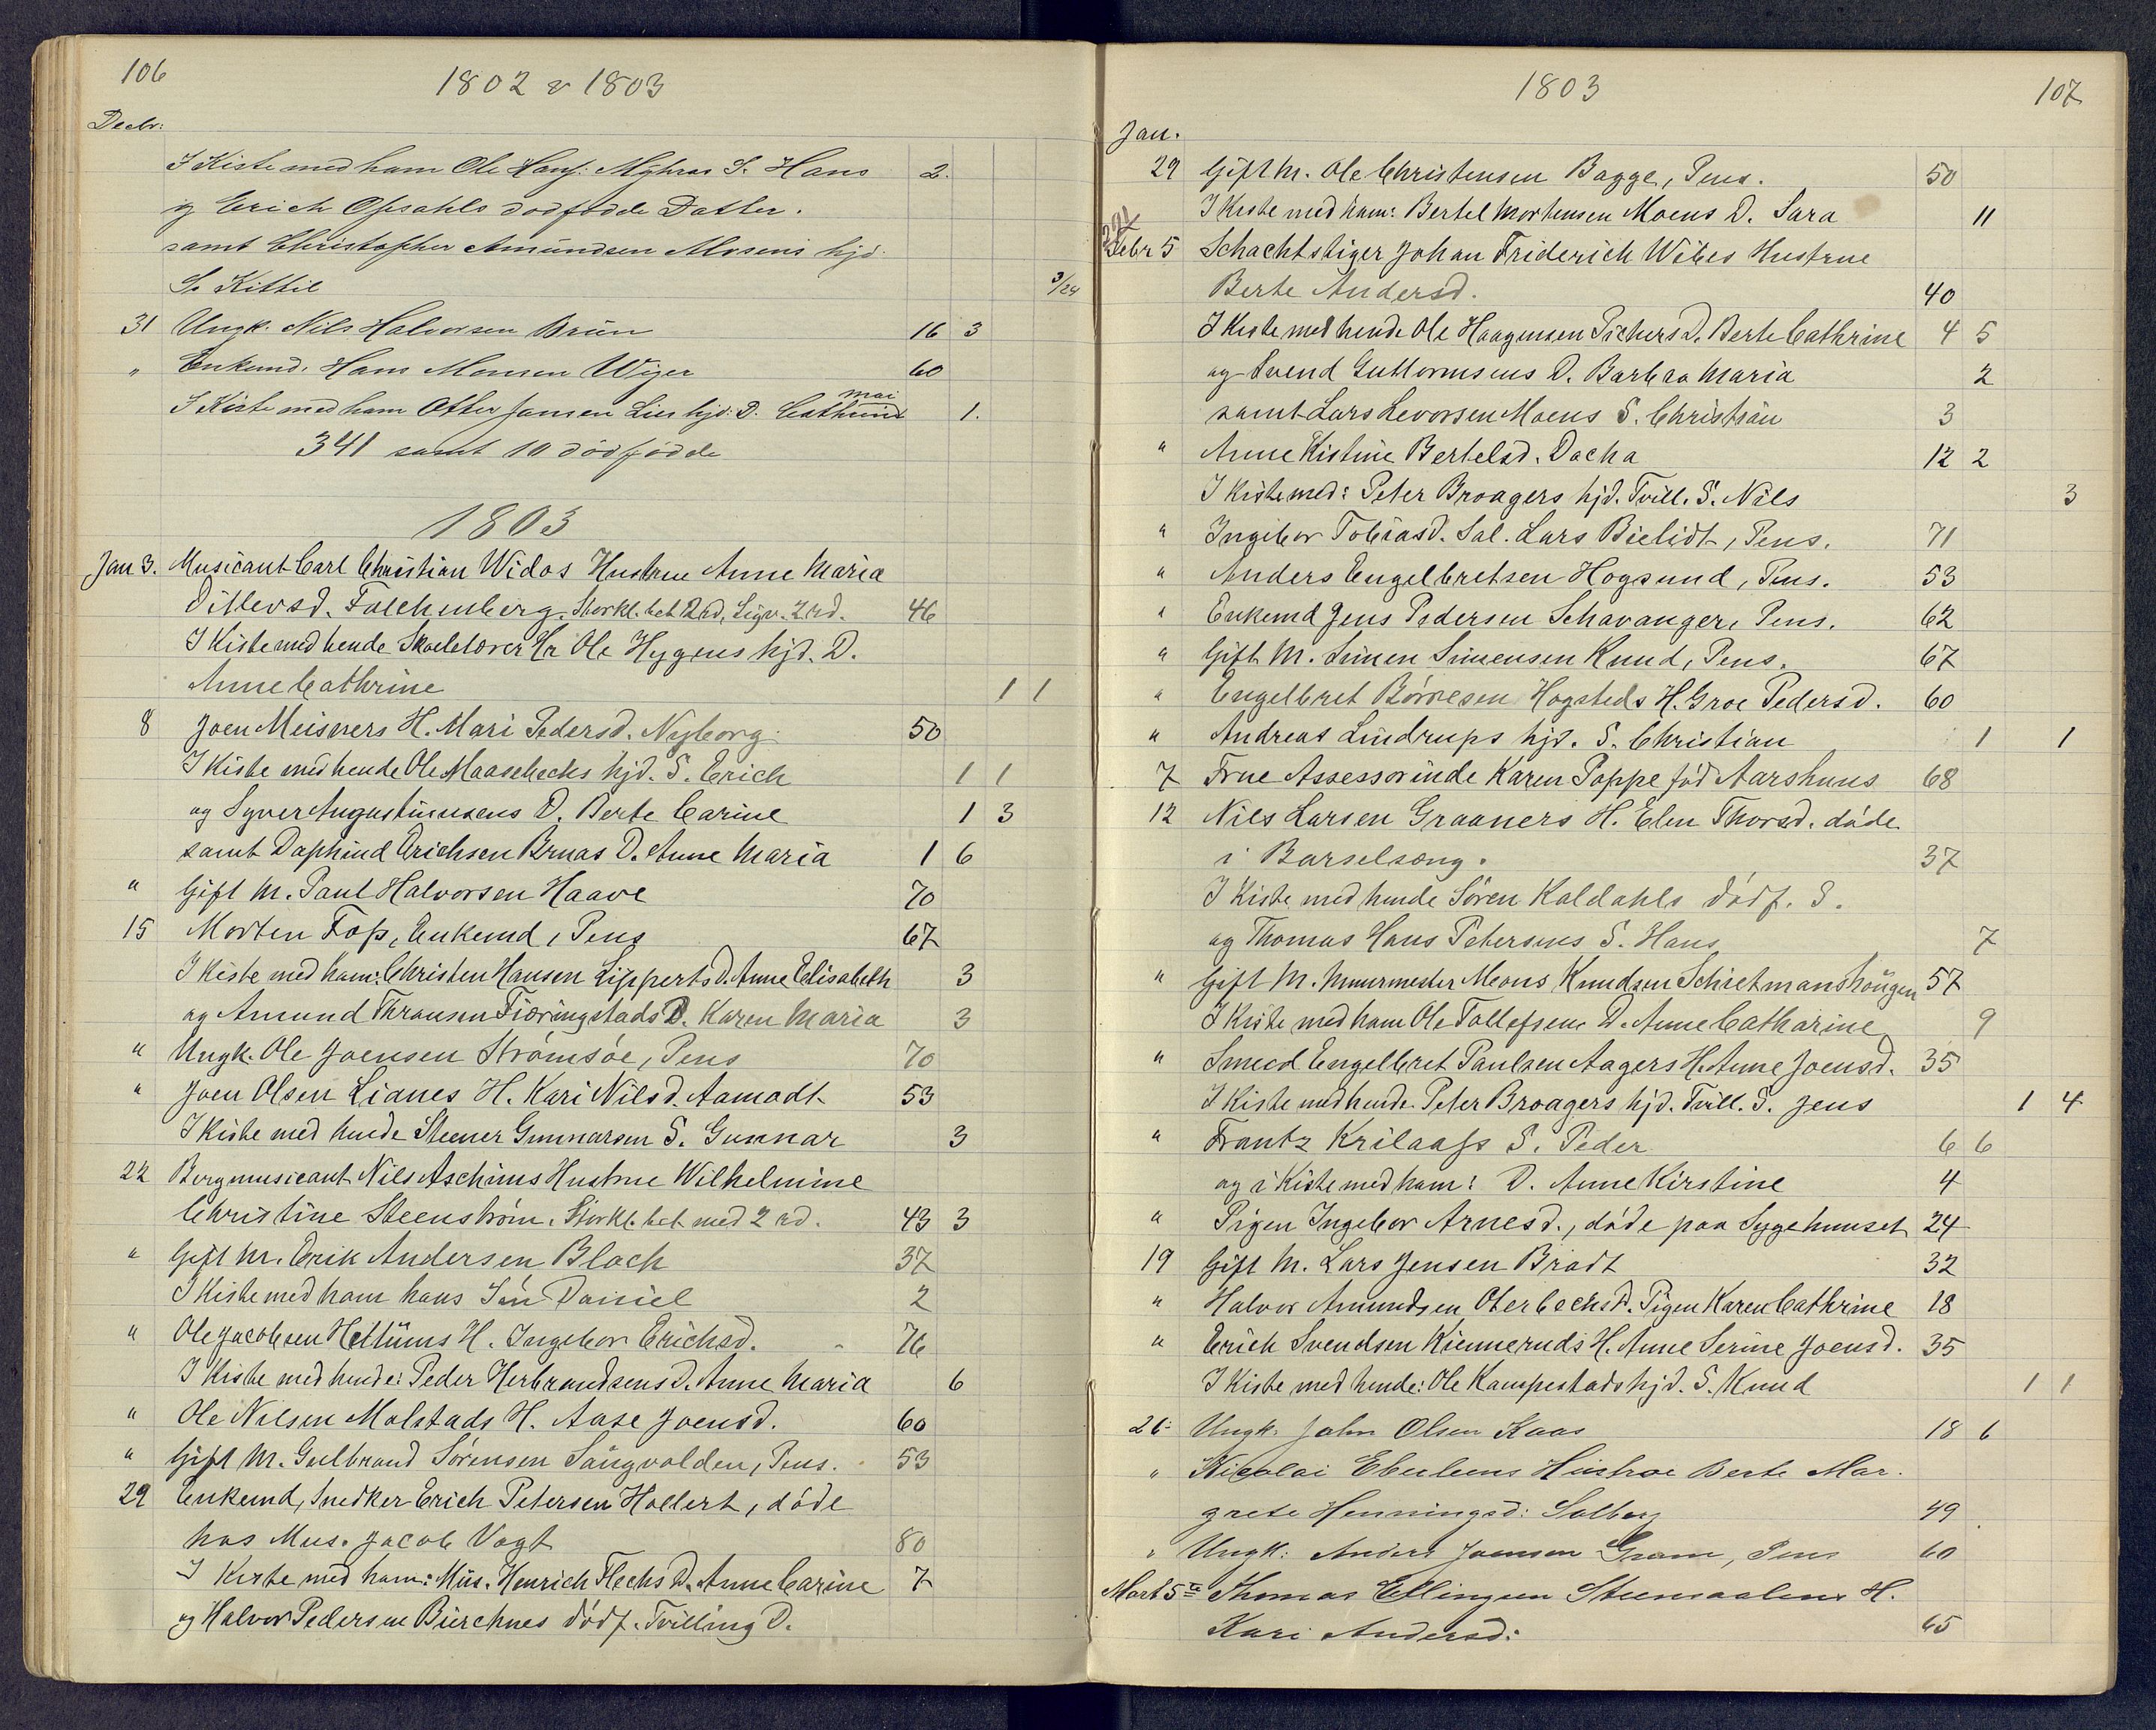 106
1802 & 1803
Decbr:
I Kiste med ham Ole Hans: Myhras S. Hans 2.
og Erich Opsahls dødfødde Datter.
samt Christopher Amundsen Mosens hjd.
S. Kittil 3/24
31 Ungk. Nils Halvorsen Brün 16 3
" Enkemd. Hans Monsen Wiger 60
mai
I Kiste med ham Otter Jansen Lies hjd. D. Cathrine 1.
341 samt 10 dödfödde
1803
Jan 3. Musicant Carl Christian Widos Hustrue Anne Maria
Ditlevsd. Falchenberg. Storkl. bet. 2 rd, Ligv. 2 rd. 46
I Kiste med hende Skoleholder Hr Ole Hygens hjd. D.
Anne Cathrine 1 1
8 Joen Meisners H. Mari Pedersd. Nyborg. 50
I Kiste med hende Ole Maasebecks hjd. S. Erich 1 1
og Syver Augustinusens D. Berte Carine 1 3
samt Daphind Erichsen Bruas D. Anne Maria 1 6
" Gift M. Paul Halvorsen Haave 70
15 Morten Foss, Enkemd, Pens 67
I Kiste med ham: Christen Hansen Lipperts D. Anne Elisabeth 3
og Amund Thronsen Fiøringstads D. Karen Maria 3
" Ungk. Ole Joensen Strømsøe, Pens 70
" Joen Olsen Lianes H. Kari Nilsd. Aamodt 53
I Kiste med hende Steener Gunnarsen S. Gunnar 3
22 Bergmusicant Nils Aschims Hustrue Wilhelmine
Christine Steenstrøm. Storkl. bet. med 2 rd. 43 3
" Gift M. Erik Andersen Bloch 37
I Kiste med ham hans Sön Daniel 2
" Ole Jacobsen Hellüms H. Ingebor Erichsd. 76
I Kiste med hende: Peder Herbrandsens D. Anne Maria 6
" Ole Nilsen Molstads H. Aase Joensd. 60
" Gift M. Gulbrand Sørensen Sangvolden, Pens. 53
29 Enkemd, Snedker Erich Petersen Hollert, døde
hos Mus. Jacob Vogt 80
I Kiste med ham: Mus. Henrich Flechs D. Anne Carine 7
og Halvor Pedersen Bürchnes dödf. Tvilling D.
1803
107
Jan.
29 Gift M. Ole Christensen Bagge, Pens. 50
I Kiste med ham: Bertel Mortensen Moens D. Sara 11
Febr 5 Schachtstiger Johan Friderich Wibes Hustrue
Berte Andersd. 40
I Kiste med hende Ole Haagensen Pichers D. Berte Cathrine 4 5
og Svend Guttormsens D. Barbra Maria 2
samt Lars Levorsen Moens S. Christian 3
" Anne Kistine Bertelsd. Dacha 12 2
I Kiste med: Peter Broagers hjd. Tvill. S. Nils 3
" Ingebor Tobiasd. Sal. Lars Bielidt, Pens. 71
" Anders Engelbretsen Hogsund, Pens. 53
" Enkemd Jens Pedersen Schavanger, Pens. 62
" Gift M. Simen Simensen Knud, Pens. 67
" Engelbret Börresen Hogsteds H. Groe Pedersd. 60
" Andreas Lindrups hjd. S. Christian 1 1
7 Frue Assessorinde Karen Poppe fød Aarshuus 68
12 Nils Larsen Graaners H. Elen Thorsd. døde
i Barselsong. 37
I Kiste med hende Søren Kaldahls dødf. S.
og Thomas Hans Petersens S. Hans 7
" Gift M. Muurmester Meons Knudsen Schietmanshougen 57
I Kiste med ham Ole Tollefsens D. Anne Catharine 9
" Smed Engelbret Paulsen Aagers H. Anne Joensd. 35
I Kiste med hende Peter Broagers hjd. Tvill. S. Jens 1 4
" Frantz Krilaass S. Peder 6 6
og i Kiste med ham: D. Anne Kirstine 4
" Pigen Ingebor Arnesd., døde paa Sygehuuset 24
19 Gift M. Lars Jensen Bradt 32
" Halvor Amundsen Oterbechs D. Pigen Karen Cathrine 18
" Erich Svendsen Kienneruds H. Anne Serine Joensd. 35
I Kiste med hende: Ole Kampestads hjd. S. Knud 1 1
26 Ungk. John Olsen Kaas 18 6
" Nicolai Ebelens Hustroe Berte Mar.
grete Henningsd: Solberg 49
" Ungk: Anders Joensen Gram, Pens 60
Mart 5te Thomas Ellingsen Steensalens H.
Kari Andersd: 65